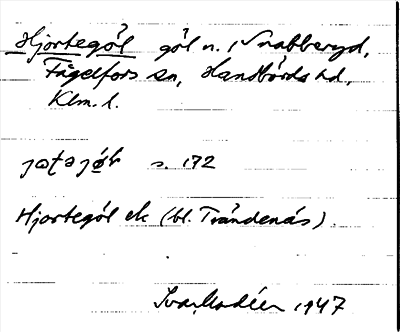 Hjortegöl göl n. i Snabberyd,
Fågelfors sn, Handbörds hd,
Klm. l.
s. 172
Hjortegöl ek (bl. Trändenäs)
Ivar Modéer 1947